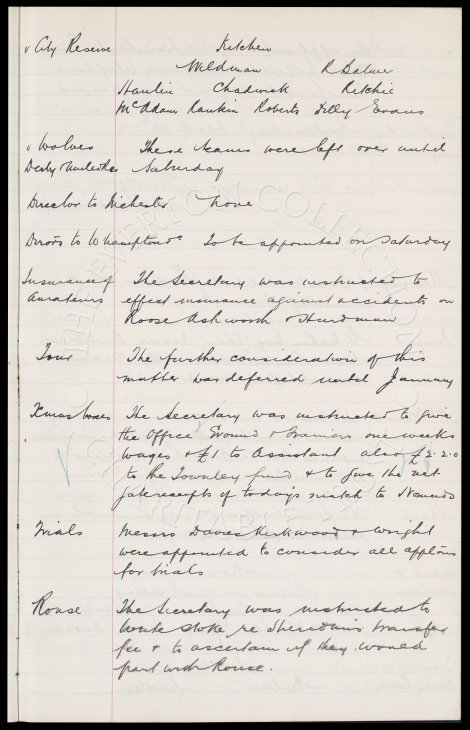 v City Reserve Kitchen
Weldman R Balmer
Hamlin Chadwick Ritchie
McAdam Rankin Roberts Evans
v Wolves These teams were left over until
Derby Saturday
Director to None
to Whampton To be appointed on Saturday
Insurance of The Secretary was instructed to
Amateurs effect insurance against accidents on
Roose Ashworth & Hardman
Tour The further consideration of this
matter was deferred until January
Xmas boxes The Secretary was instructed to give
the Office Ground & Trainers one weeks
wages & £1 to Assistant also £2.2.0
to the Townley fund & to give the net
gate receipts of todays match to Nomads
Trials Messrs Davies Kirkwood & Wright
were appointed to consider all
for trials
Rouse The Secretary was instructed to
write Stoke re Sheridans transfer
fee & to ascertain if they would
part with Rouse.
THE EVERTON COLLECTION